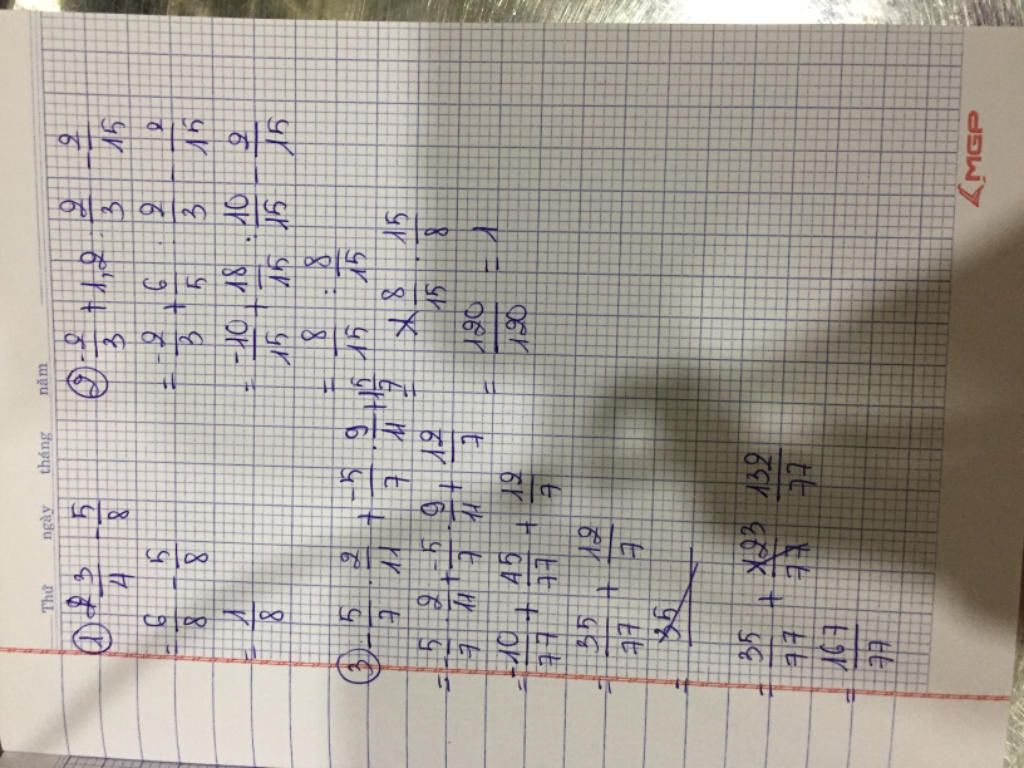 Thứ ngày tháng năm
① 3/4 - 5/8
= 6/8 - 5/8
= 1/8
② -2/3 + 1,2 : 2/3 - 2/15
= -2/3 + 6/5 : 2/3 - 2/15
= -10/15 + 18/15 : 10/15 - 2/15
= 8/15 : 8/15
8/15 . 15/8
= 120/120 = 1
③ -5/7 . 2/11 + -5/7 . 9/11 + 1 5/7
= -5/7 . 2/11 + -5/7 . 9/11 + 12/7
= -10/77 + 45/77 + 12/7
= 35/77 + 12/7
=
= 35/77 + 132/77
= 167/77
MGP